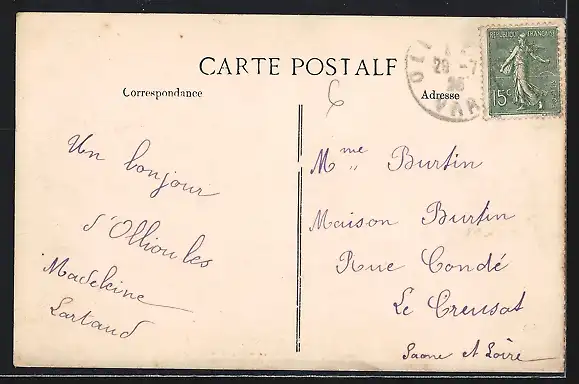 CARTE POSTALE
Correspondance
Adresse
RÉPUBLIQUE FRANÇAISE
15c
OLL
28 -7
VAR
6
Un bonjour
d'Ollioules
Madeleine
Lartaud
Mme Burtin
Maison Burtin
Rue Condé
Le Creusot
Saone et Loire